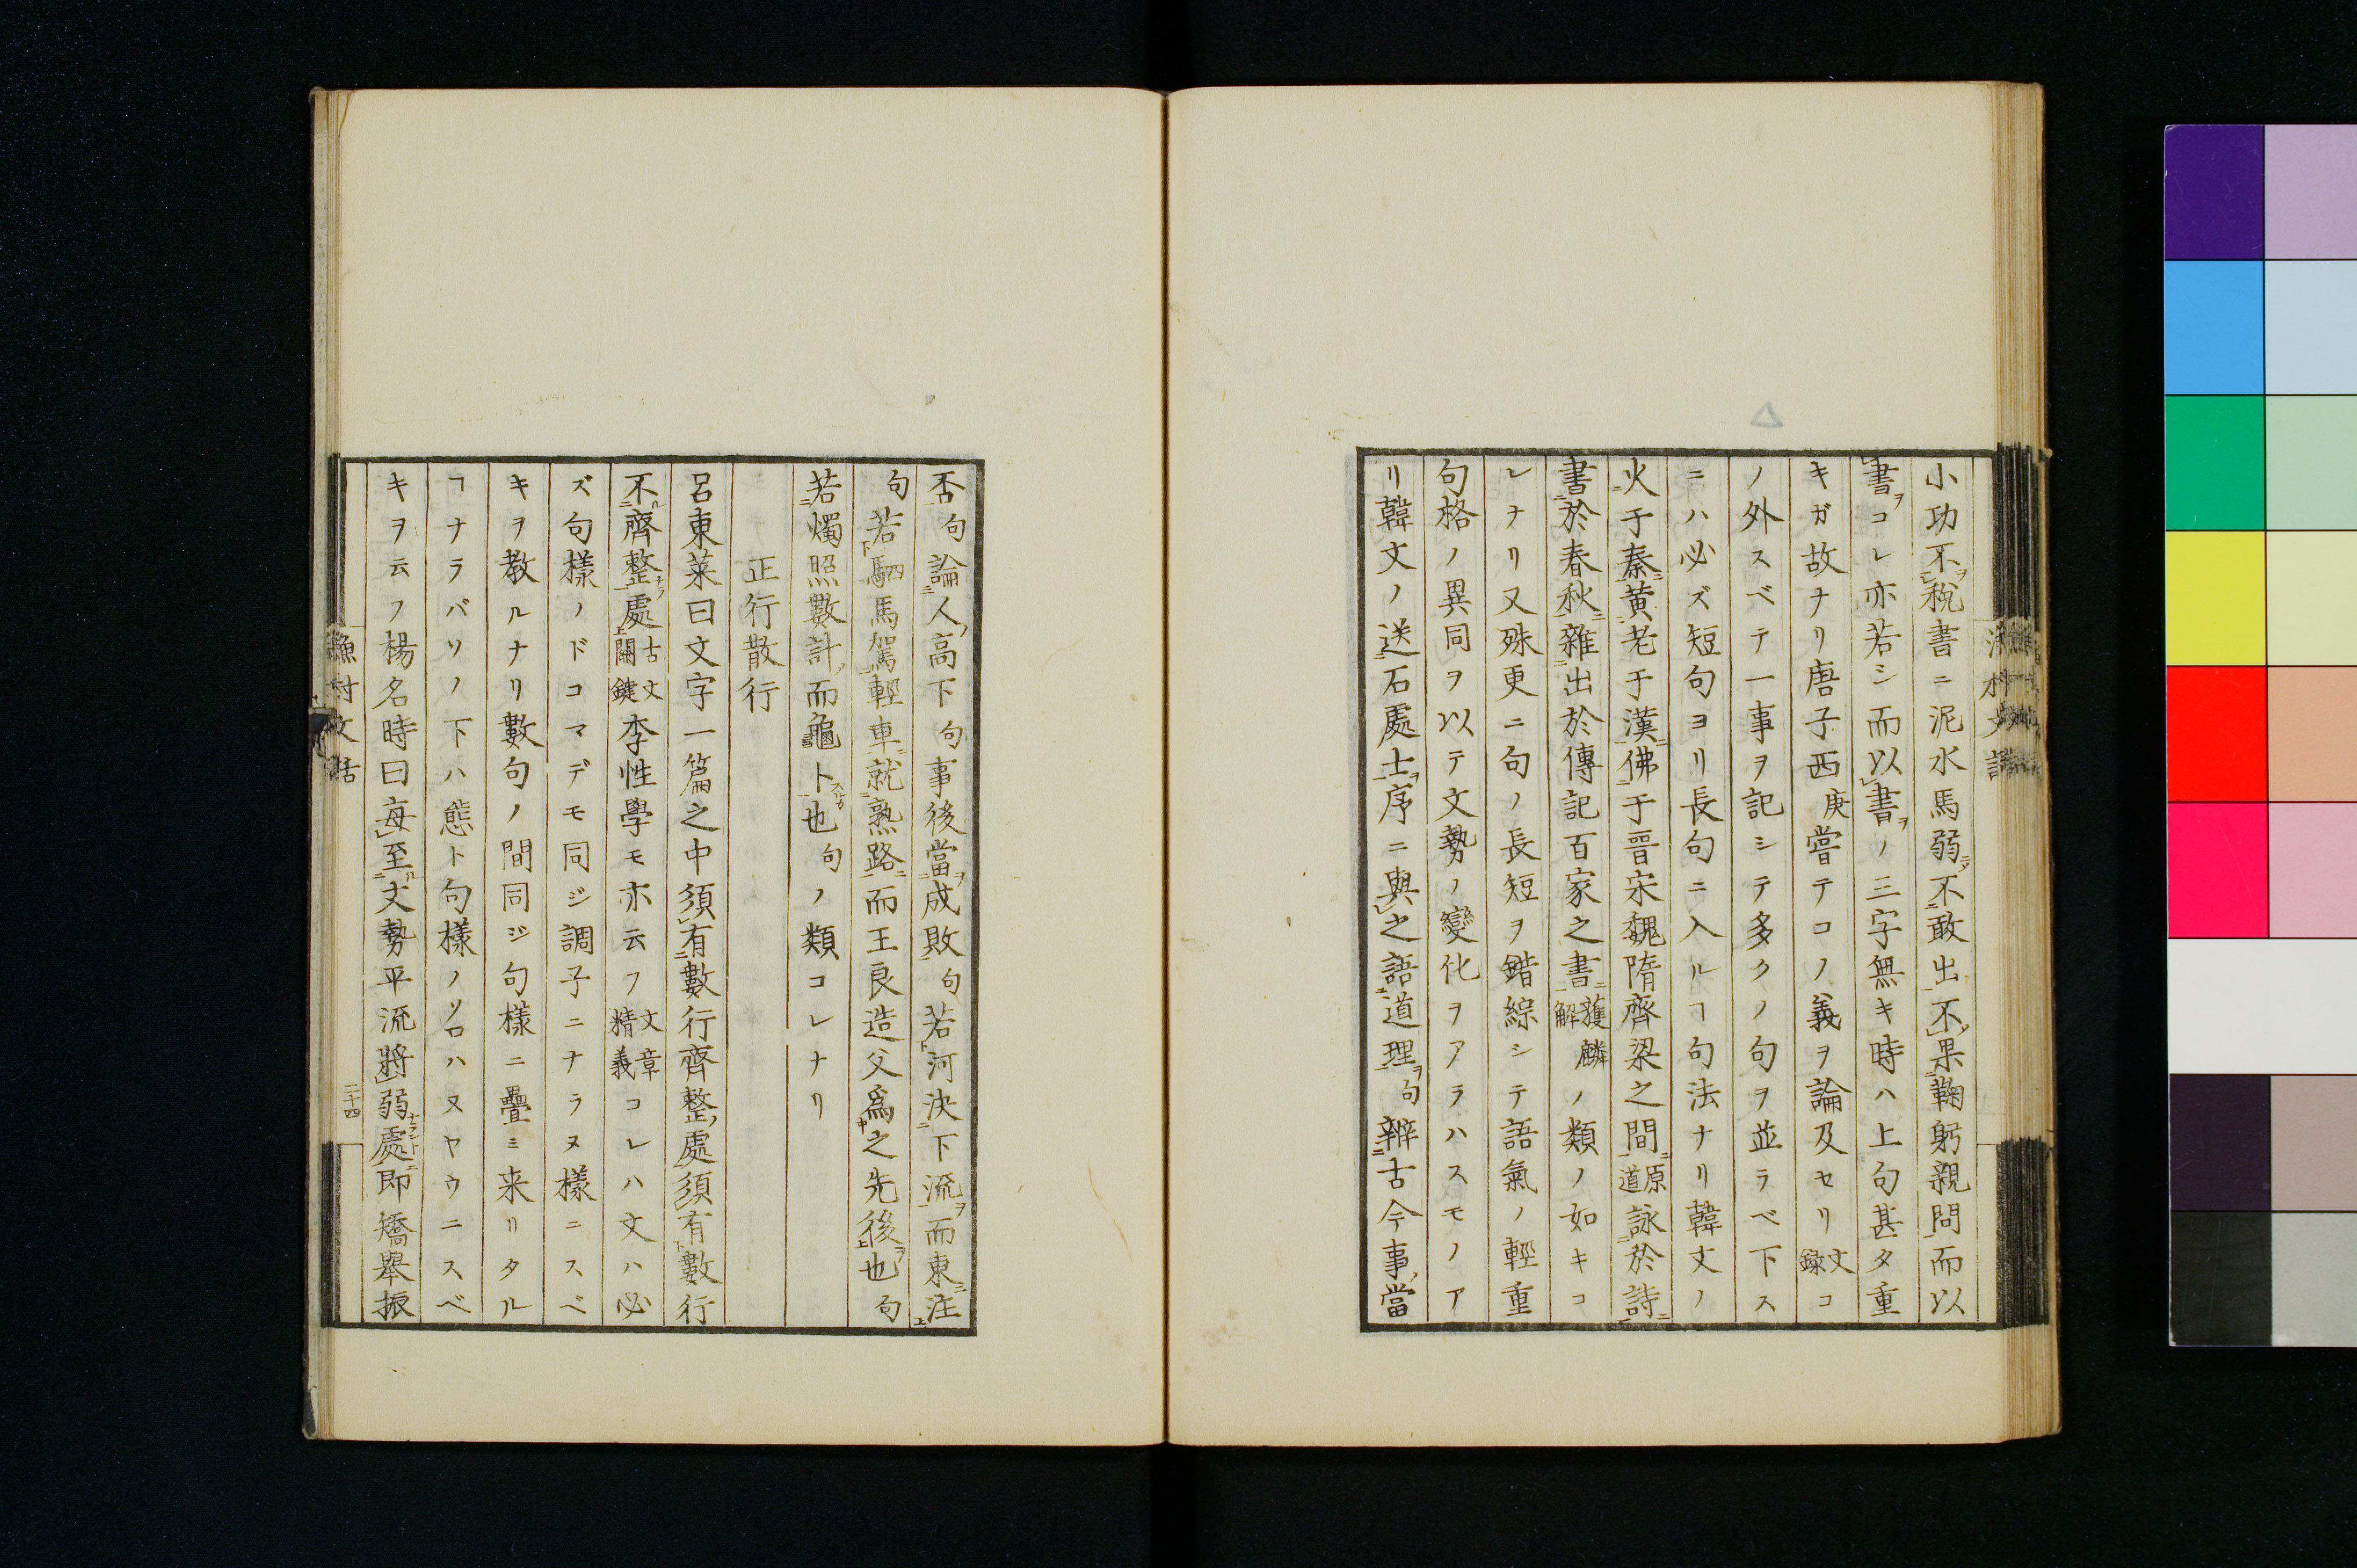 小功不税書ニ泥水馬弱不敢出不果鞠躬親問而以
書コレ亦若シ而以書ノ三字無キ時ハ上句甚タ重
キガ故ナリ唐子西庚嘗テコノ義ヲ論及セリ文録コ
ノ外スベテ一事ヲ記シテ多クノ句ヲ並ラベ下ス
ニハ必ズ短句ヨリ長句ニ入ルヿ句法ナリ韓文ノ
火于秦黄老于漢佛于晋宋魏隋齊梁之間原道詠於詩
書於春秋雜出於傳記百家之書獲麟解ノ類ノ如キコ
レナリ又殊更ニ句ノ長短ヲ錯綜シテ語氣ノ輕重
句格ノ異同ヲ以テ文勢ノ變化ヲアラハスモノア
リ韓文ノ送石處士序ニ與之語道理句辨古今事當
否句論人高下句事後當成敗句若河決下流而東注
句若駟馬駕輕車就熟路而王良造父爲之先後也句
若燭照數計而龜卜也句ノ類コレナリ
正行散行
呂東萊曰文字一篇之中須有數行齊整處須有數行
不齊整處古文關鍵李性學モ亦云フ文章精義コレハ文ハ必
ズ句樣ノドコマデモ同ジ調子ニナラヌ樣ニスベ
キヲ教ルナリ數句ノ間同ジ句樣ニ疊ミ来リタル
ヿナラバソノ下ハ態ト句樣ノソロハヌヤウニスベ
キヲ云フ楊名時曰毎至文勢平流將弱處即矯舉振
漁村文話
二十四